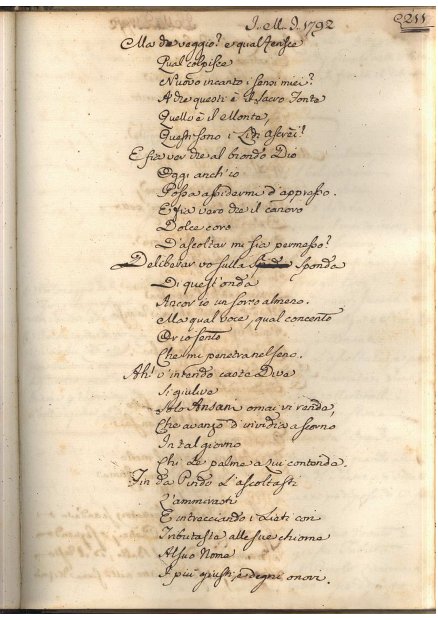 J. M. J. 1792
211
Ma che veggio? e qual ferisce
Qual colpisce
Nuovo incanto i sensi miei?
Ah che questi è il sacro Fonte
Quello è il Monte,
Questi sono i Lidi Ascrei!
E fia ver che al biondo Dio
Oggi anch'io
Possa assidermi d'appresso.
E fia vero che il canoro
Dolce coro
D'ascoltar mi sia permesso?
Delibar vo sulla Sponda
Di quest'onda
Ancor io un sorso almeno.
Ma qual voce, qual concento
Or io sento
Che mi penetra nel seno.
Ah! v'intendo caste Dive
Sì giulive
Solo Ansani omai vi rende,
Che avanzò d'invidia a scorno
In tal giorno
Chi le palme a lui contende.
Fin da Pindo l'ascoltasti
L'ammirasti
E intrecciando i Lieti cori
Tributaste alle sue chiome
Al suo Nome
I più giusti, e degni onori.